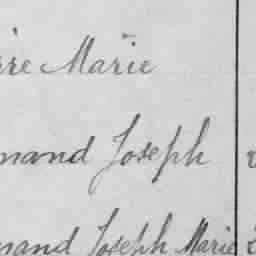 rre Marie
mand Joseph
mand Joseph Marie